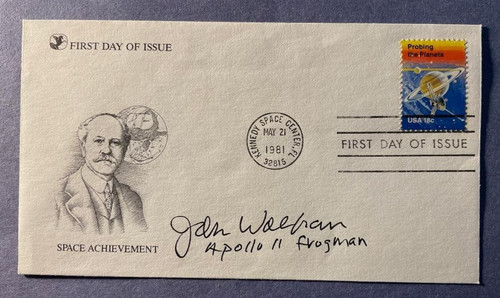 FIRST DAY OF ISSUE
Probing
the Planets
USA 18c
KENNEDY SPACE CENTER, FL
MAY 21
1981
32815
FIRST DAY OF ISSUE
SPACE ACHIEVEMENT
John Wolfram
Apollo 11 frogman